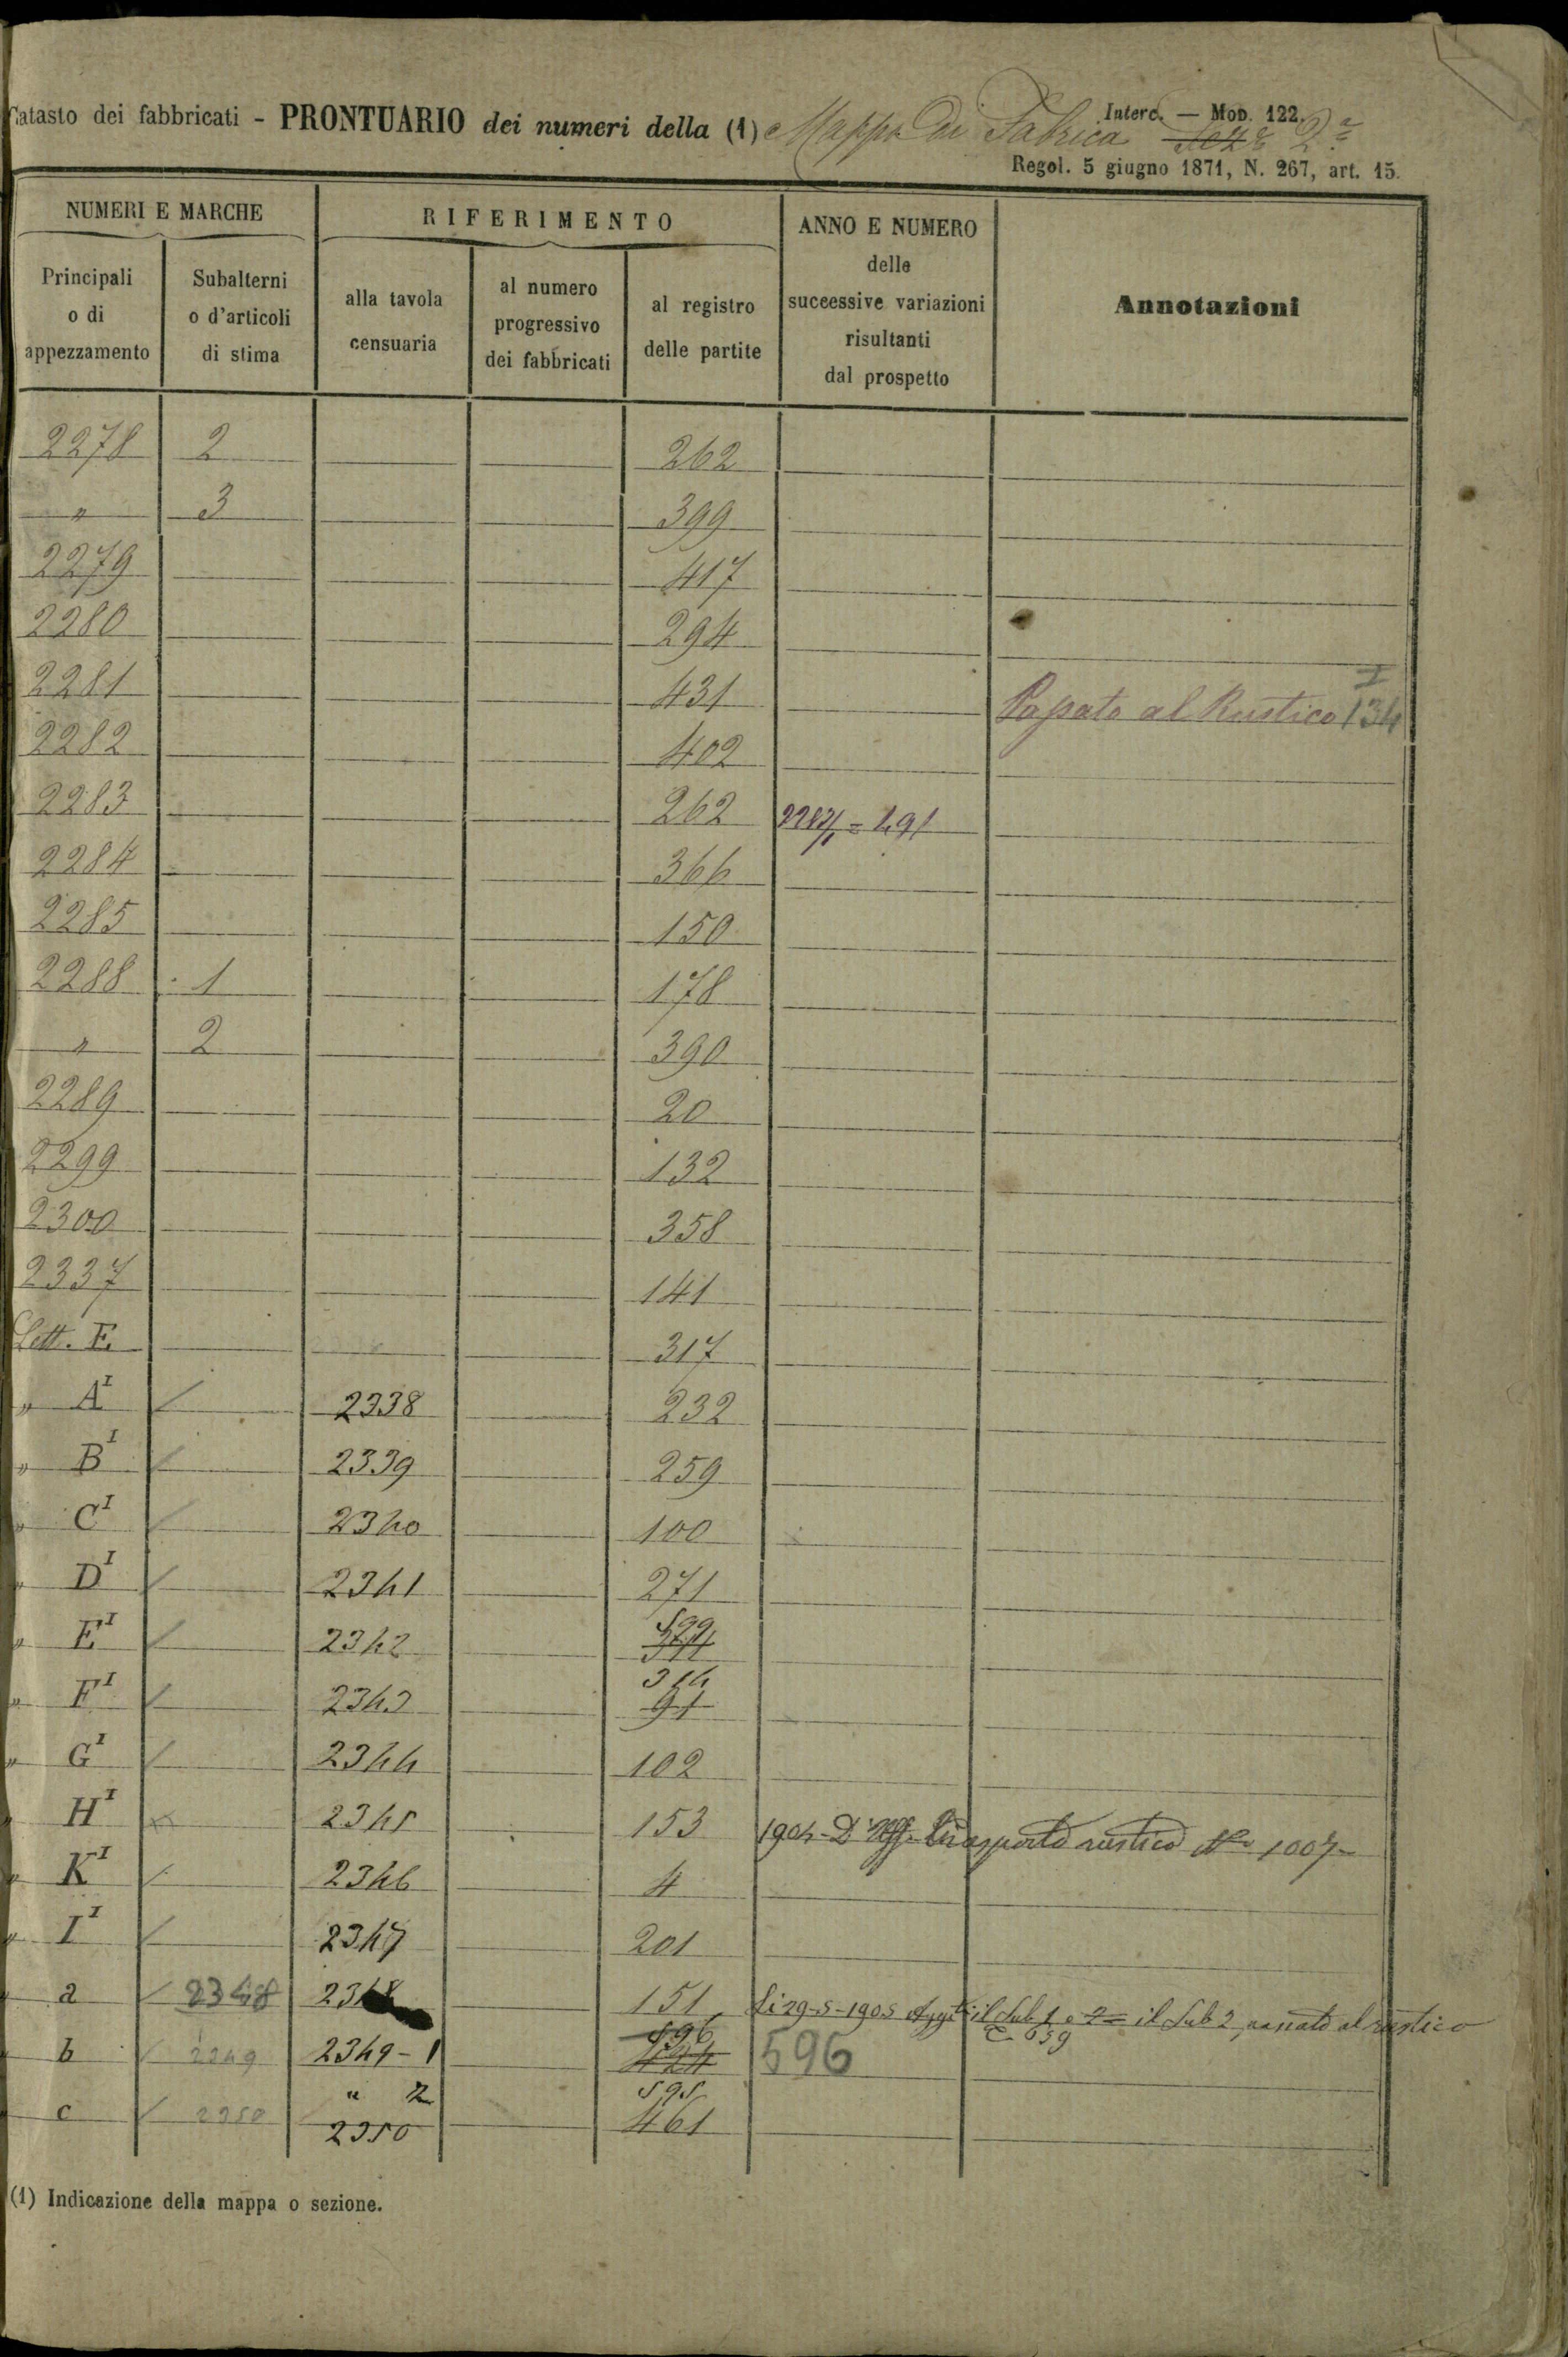 Catasto dei fabbricati - PRONTUARIO dei numeri della (1) Mappa di Fabrica Sez.e 2.a
Interc. — Mod. 122.
Regol. 5 giugno 1871, N. 267, art. 15.
NUMERI E MARCHE
RIFERIMENTO
ANNO E NUMERO
delle
successive variazioni
risultanti
dal prospetto
Annotazioni
Principali
o di
appezzamento
Subalterni
o d'articoli
di stima
alla tavola
censuaria
al numero
progressivo
dei fabbricati
al registro
delle partite
2278 2 262
" 3 399
2279 417
2280 294
2281 431 Passato al Rustico 134 I
2282 402
2283 262 = 491
2284 366
2285 150
2288 1 178
" 2 390
2289 20
2299 132
2300 358
2337 141
Lett. E. 317
" A I 2338 232
" B I 2339 259
" C I 2340 100
" D I 2341 271
" E I 2342 599
" F I 2343 314 91
" G I 2344 102
" H I 2345 153 1904 - trasporto rustico No 1007
" K I 2346 4
" I I 2347 201
" a 2348 2348 151 Li 29-5-1905 il Sub 1 e 2 = il Sub 2 passato al rustico
659
" b 2349 2349-1 596 424 596
" 2 595
" c 2350 2350 461
(1) Indicazione della mappa o sezione.